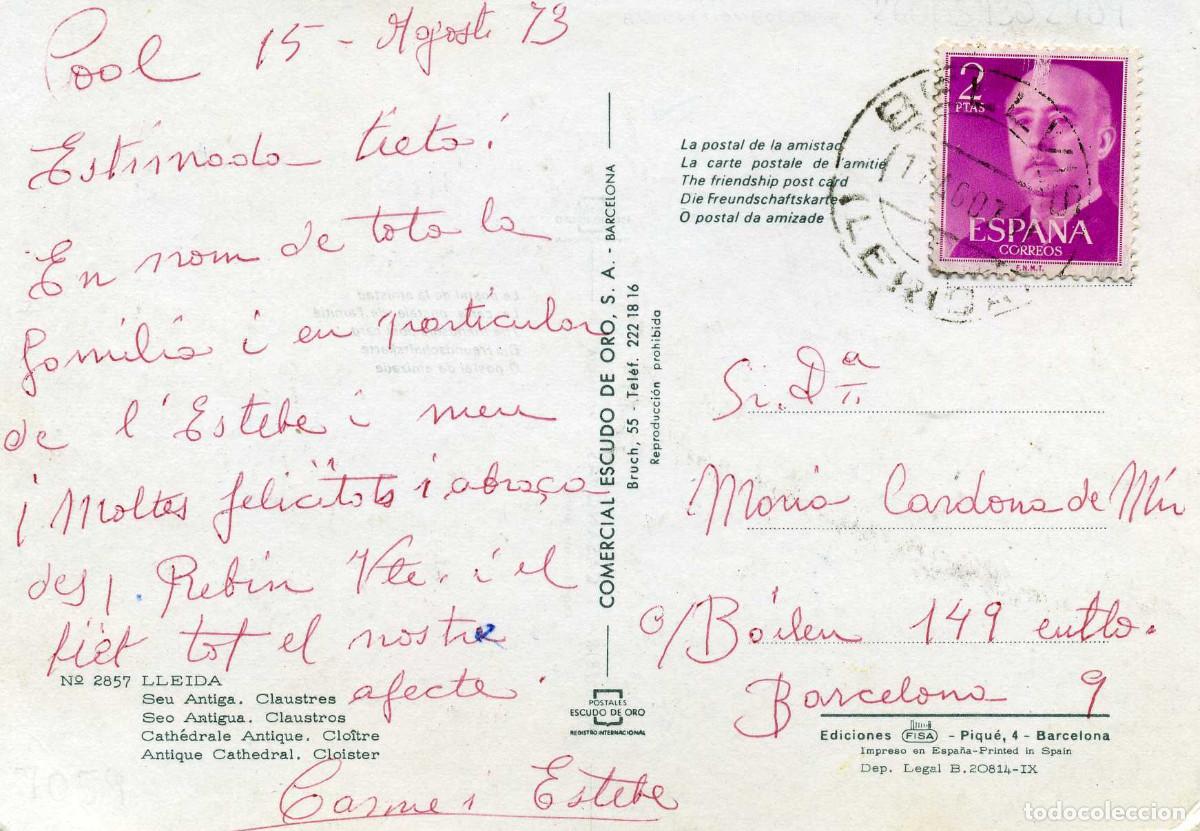 Pool 15 - Agost 73
Estimada tieta:
En nom de tota la
familia i en particular
de l'Estebe i meu
¡Moltes felicitats i abraça
des¡ Rebin Vte. i el
tiet tot el nostre
afecte.
Carme i Estebe
Nº 2857 LLEIDA
Seu Antiga. Claustres
Seo Antigua. Claustros
Cathédrale Antique. Cloître
Antique Cathedral. Cloister
COMERCIAL ESCUDO DE ORO, S. A. - BARCELONA
Bruch, 55 - Teléf. 222 18 16
Reproducción prohibida
POSTALES
ESCUDO DE ORO
REGISTRO INTERNACIONAL
La postal de la amistad
La carte postale de l'amitié
The friendship post card
Die Freundschaftskarte
O postal da amizade
2
PTAS
ESPAÑA
CORREOS
F.N.M.T.
(LERIDA)
Sr. Dª
Maria Cardona de Mir
c/ Bóilen 149 entlo.
Barcelona 9
Ediciones FISA - Piqué, 4 - Barcelona
Impreso en España-Printed in Spain
Dep. Legal B. 20814-IX
todocoleccion